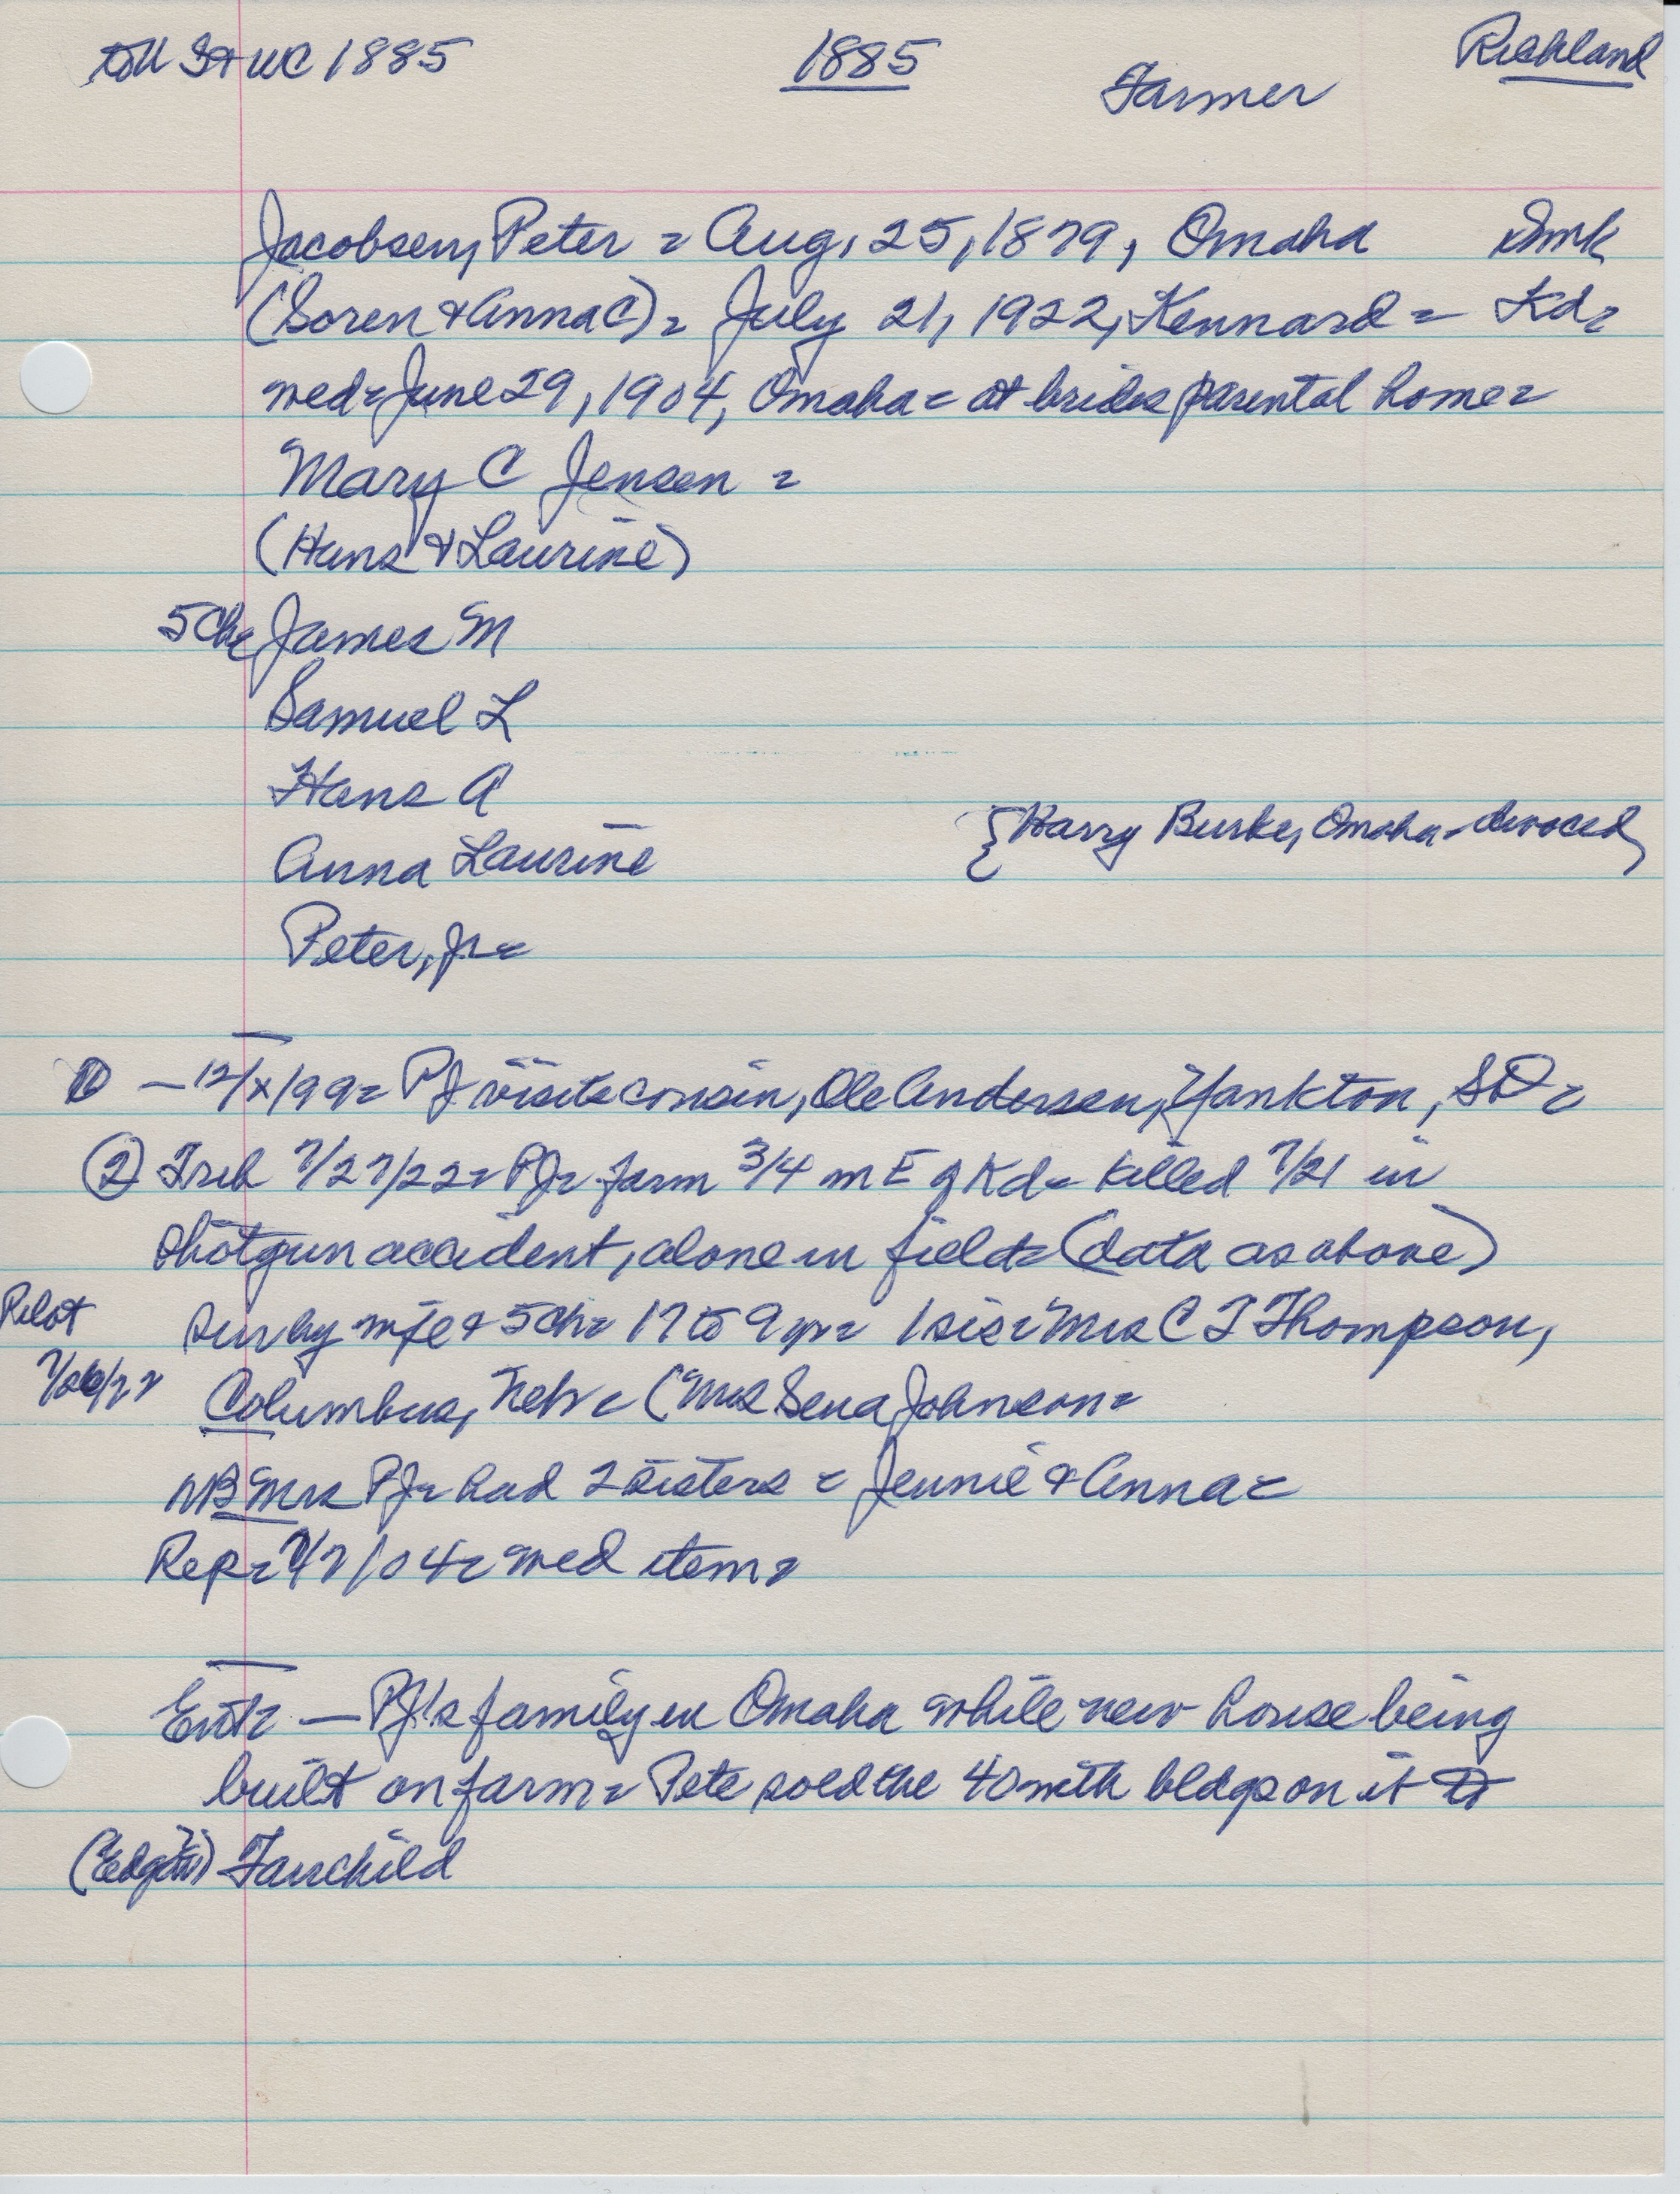 WC 1885 1885 Farmer Richland
Jacobsen, Peter = Aug. 25, 1879, Omaha Dmk
(Soren & Anna C) = July 21, 1922, Kennard = Kd=
wed = June 29, 1904, Omaha = at brides parental home =
Mary C Jensen =
(Hans & Laurine)
5 Ch= James M
Samuel L
Hans A
Anna Laurine {Harry Burke, Omaha - divoced}
Peter, Jr =
① — 12/x/99= PJ visits cousin, Ole Andersen, Yankton, SD=
② Trib 7/27/22= PJ= farm 3/4 m E of Kd= killed 7/21 in
shotgun accident, alone in field= (data as above)
Pilot sur by wife & 5 ch= 17 to 9 yr= 1 sis= Mrs C T Thompson,
Columbus, Nebr= (Mrs Sena Johnson=
NB Mrs PJ= had 2 sisters = Jennie & Anna=
Rep= 7/7/04= wed item=
Ent= — PJ's family in Omaha while new house being
built on farm= Pete sold the 40 with bldgs on it
Fairchild